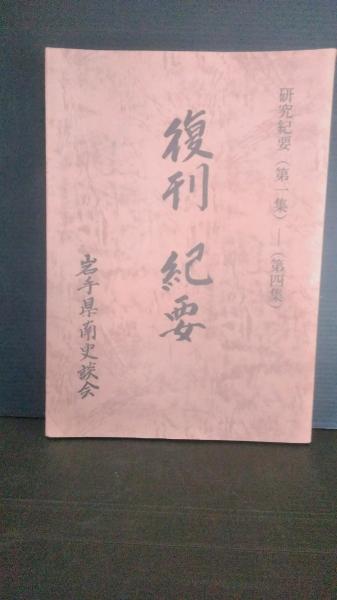 研究紀要（第一集）―（第四集）
復刊 紀要
岩手県南史談会